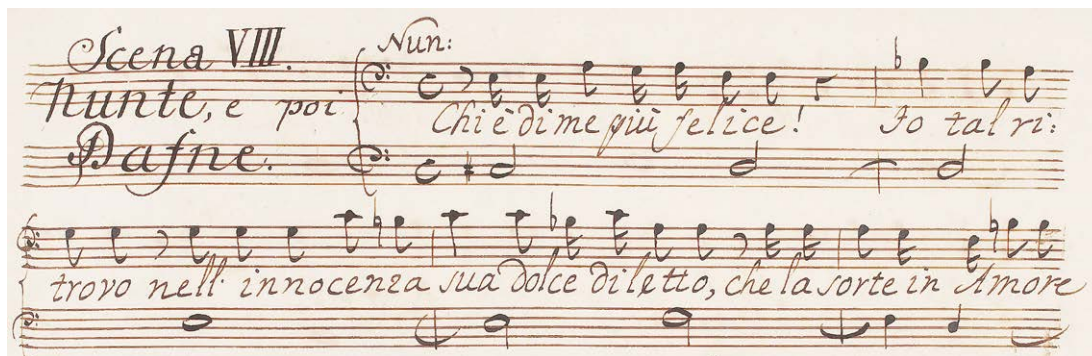 Scena VIII.
Nunte, e poi
Dafne.
Nun:
Chi è di me più felice! Io tal ri:
trovo nell' innocenza sua dolce diletto, che la sorte in Amore